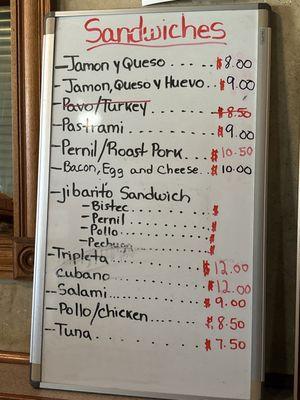 Sandwiches
- Jamon y Queso ..... $8.00
- Jamon, Queso y Huevo . $9.00
- Pavo/Turkey $8.50
- Pastrami ........ $9.00
- Pernil/Roast Pork. $10.50
- Bacon, Egg and Cheese... $10.00
- Jibarito Sandwich
- Bistec ......... $
- Pernil ......... $
- Pollo ......... $
- Pechuga ....... $
- Tripleta ......... $12.00
Cubano ......... $12.00
- Salami ......... $9.00
- Pollo/chicken ...... $8.50
- Tuna ......... $7.50